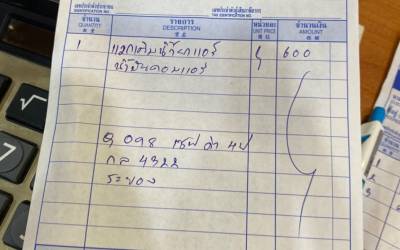 เลขประจำตัวประชาชน เลขประจำตัวผู้เสียภาษีอากร
IDENTIFICATION NO. TAX IDENTIFICATION NO.
จำนวน รายการ หน่วยละ จำนวนเงิน
QUANTITY DESCRIPTION UNIT PRICE AMOUNT
1 แวคเติมน้ำยาแอร์ 600
น้ำมันคอมแอร์
098 ดำ
กล 4322
ระยอง
√
7